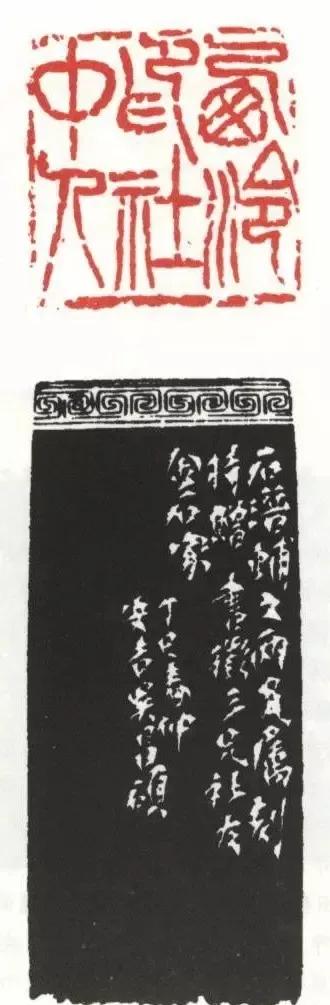 西泠
印社
中人
石潛輔之兩兄屬刻
持贈書徵三兄社友
金石家
丁巳春仲
安吉吳昌碩